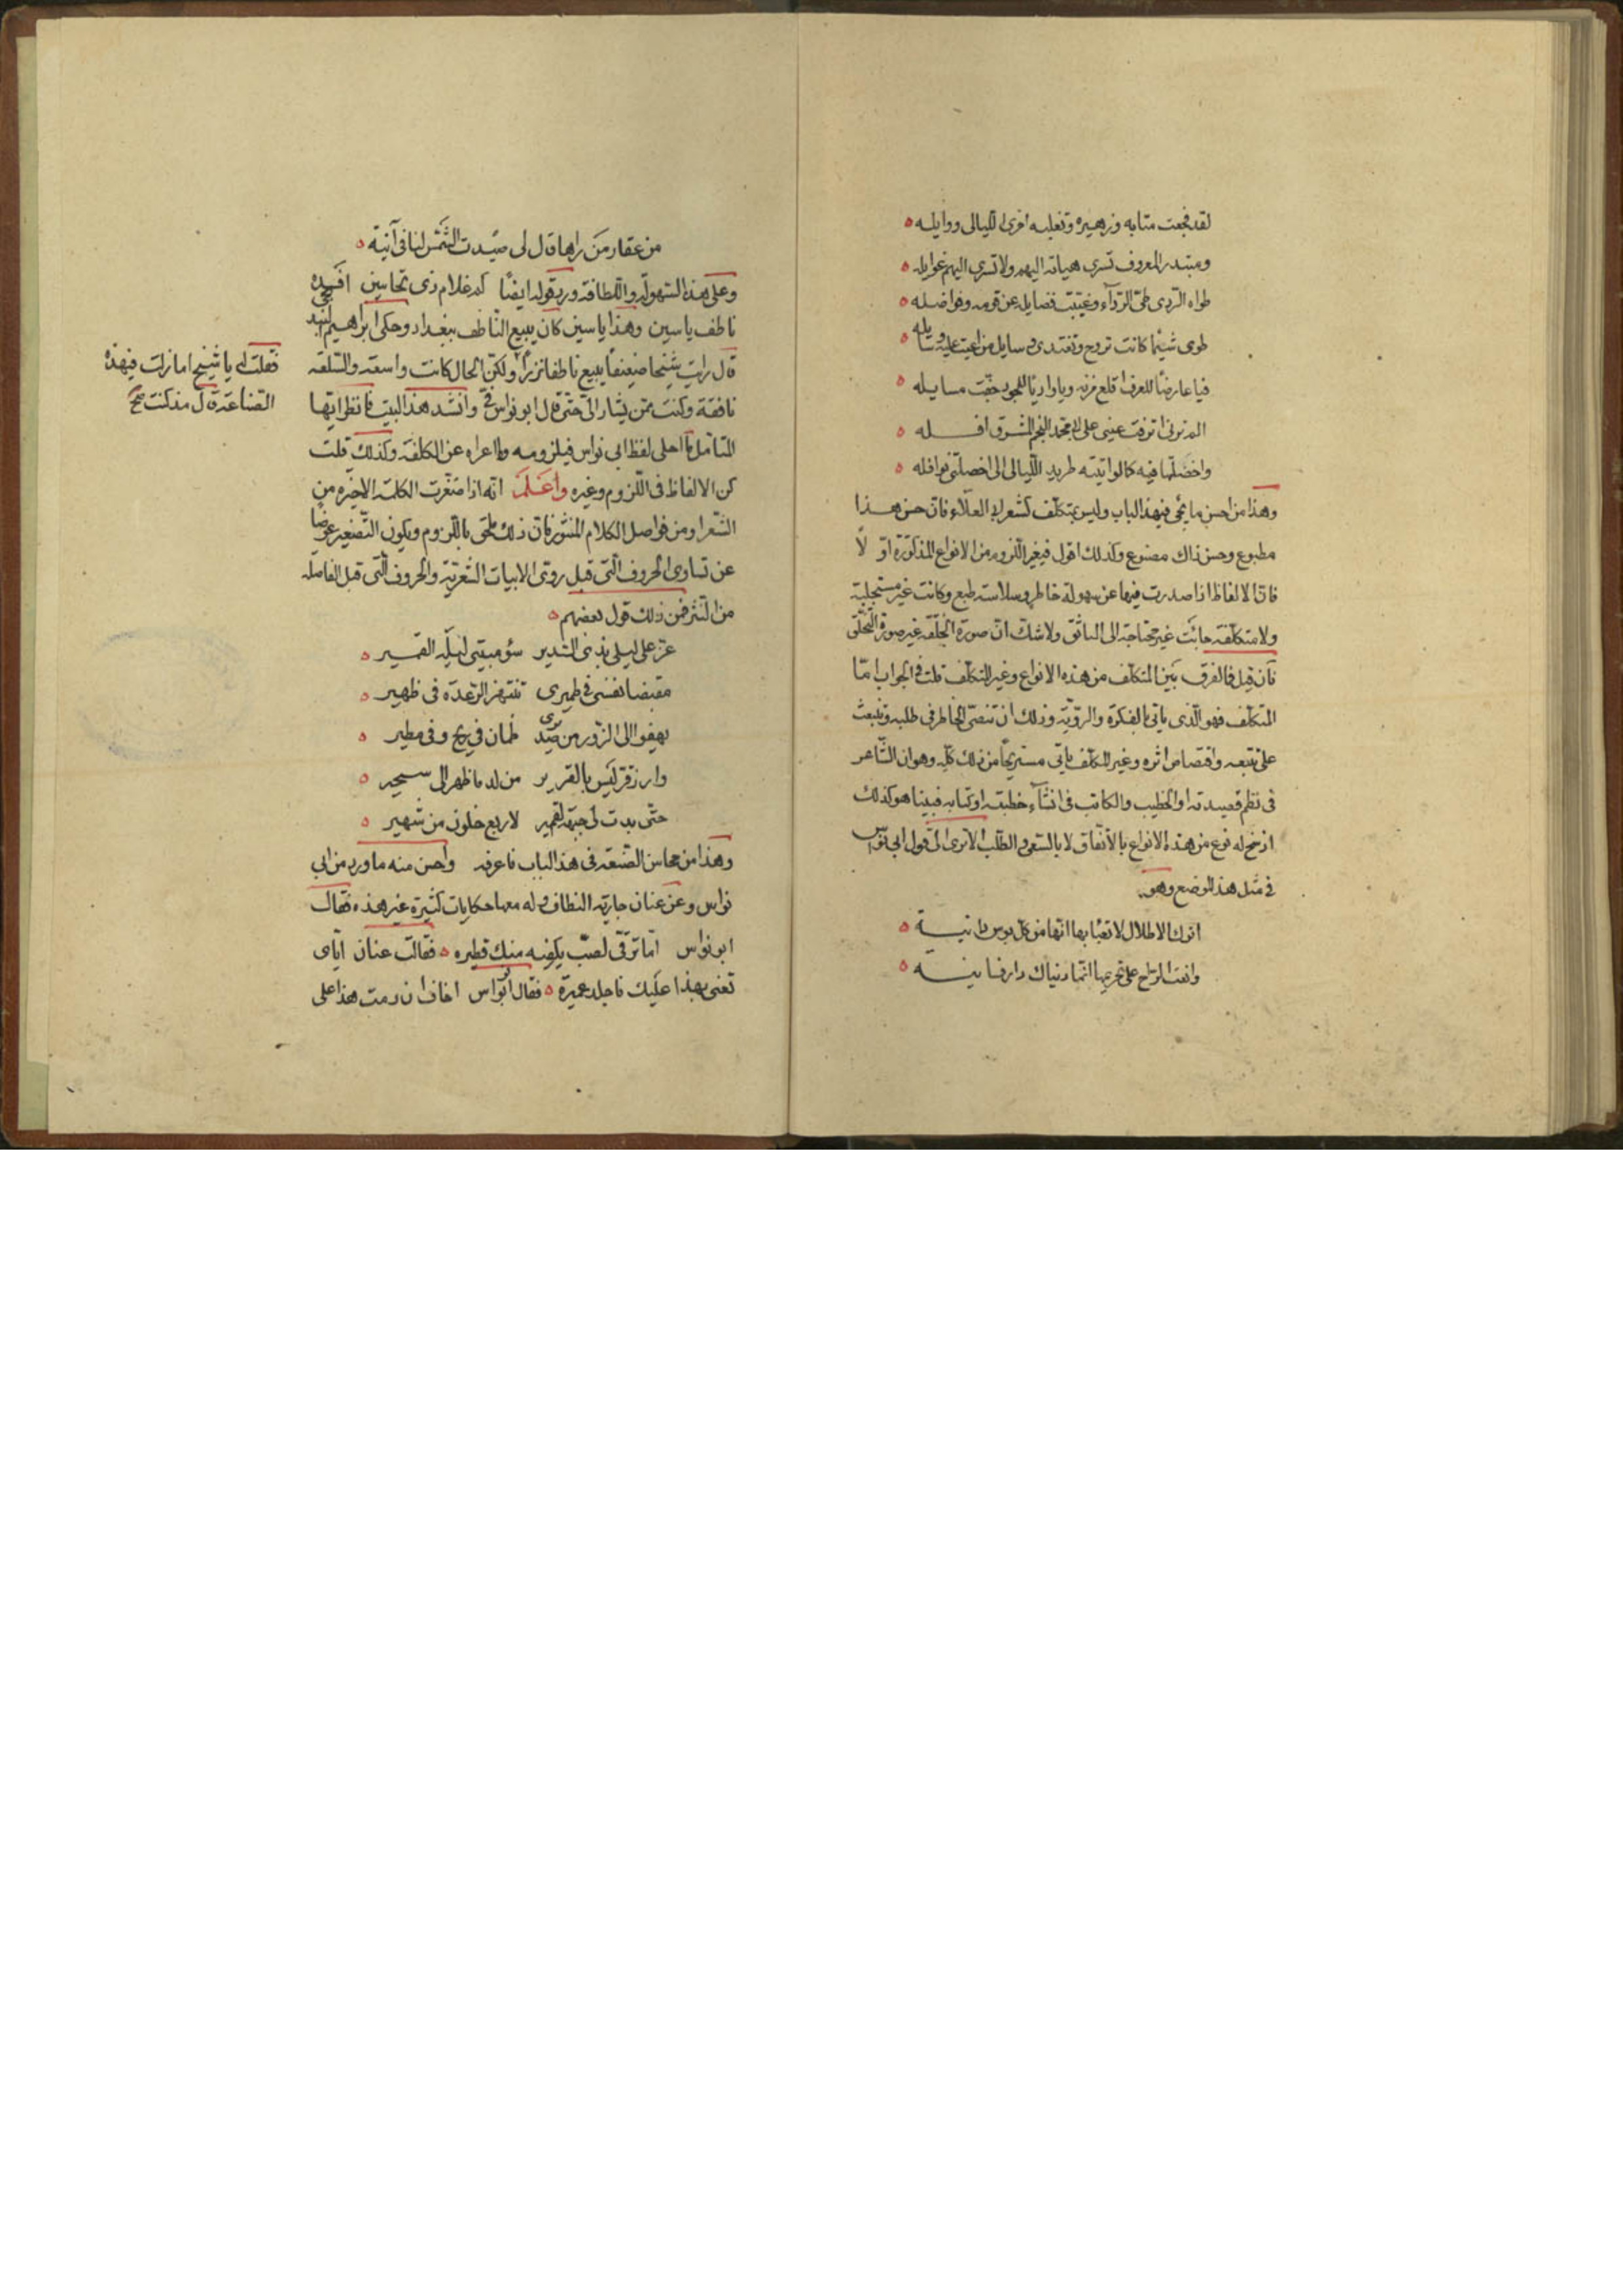 لقد فجعت عتابه وزهيره وتغلبه اخرى الليالى ووايله
ومبتدر المعروف تسري هباته اليهم ولا تسري اليهم غوايله
طواه الردى طى الردآء وغيبت فضايله عن قومه وفواضله
طوى شيما كانت تروح وتغتدى وسايل من اعيت عليه وسايله
فيا عارضا للعرف اقلع مزنه ويا واديا للجود جفت مسايله
الم ترنى انزفت عينى على ابى محمد النجم المشرق افله
واخضلتها فيه كما لو اتيته طريد الليالى اخضلتنى نوافله
وهذا من احسن ما يجئ فى هذا الباب وليس بمتكلف كشعر ابى العلاء فان حسن هذا
مطبوع وحسن ذاك مصنوع وكذلك اقول فى غير اللزوم من الانواع المذكورة اولا
فان الالفاظ اذا صدرت فيها عن سهولة خاطر وسلاسة طبع وكانت غير مستجلبة
ولا متكلفة جائت غير محتاجة الى التانق ولا شك ان صورة الخلقة غير صورة التخلق
فان قيل فما الفرق بين المتكلف من هذه الانواع وغير المتكلف قلت فى الجواب اما
المتكلف فهو الذى ياتى بالفكرة والروية وذلك ان تنضى الخاطر فى طلبه وتبعث
على تتبعه واقتصاص اثره وغير المتكلف ياتى مستريحا من ذلك كله وهو ان الشاعر
فى نظم قصيدته او الخطيب والكاتب فى انشآء خطبته او كتابه فبينا هو كذلك
اذ سنح له نوع من هذه الانواع بالاتفاق لا بالسعى والطلب الا ترى الى قول ابى نواس
فى مثل هذا الموضع وهو
اترك الاطلال لا تعبا بها انها من كل بوس دانية
وانعت الراح على تحريمها انما دنياك دار فانية
من عقار من راها قال لى صيدت الشمس لنا فى آنية
وعلى هذه السهولة واللطافة ورد قوله ايضا كم غلام ذى تحاسين افسده
ناطف ياسين وهذا ياسين كان يبيع الناطف ببغداد وحكى ابراهيم البند
قال رايت شيخا ضعيفا يبيع ناطفا نزرا ولكن الحال كانت واسعة والسلعة
فقلت له يا شيخ اما زلت فى هذه
الصناعة قال مذ كنت صح
نافقة وكنت ممن يشار الى حتى قال ابو نواس فى وانشد هذا البيت فانظر ايها
المتامل ما احلى لفظ ابى نواس فى لزومه وما اعراه عن الكلفة وكذلك قلت
كن الالفاظ فى اللزوم وغيره واعلم انه اذا صغرت الكلمة الاخيره من
الشعر او من فواصل الكلام المنثور فان ذلك ملحق باللزوم ويكون التصغير عوضا
عن تساوى الحروف التى قبل روى الابيات الشعرية والحروف التى قبل الفاصلة
من النثر فمن ذلك قول بعضهم
عز على ليلى بذى السدير سؤ مبيتى ليلة القمير
مقبضا نفسى فى طميرى تنتهز الرعدة فى ظهير
يهفو الى الزور من صديرى ظمان فى ريح وفى مطير
وارز قر ليس بالقرير من لد ما ظهر الى سحير
حتى بدت لى جبهة القمير لاربع خلون من شهير
وهذا من محاسن الصنعة فى هذا الباب فاعرفه واحسن منه ما ورد من ابى
نواس وعن عنان جارية النطاف وله معها حكايات كثيرة غير هذه فقال
ابو نواس اما ترقى لصب يكفيه منك قطيره فقالت عنان اياى
تعنى بهذا عليك فاجلد عميرة فقال ابو نواس اخاف ان رمت هذا على